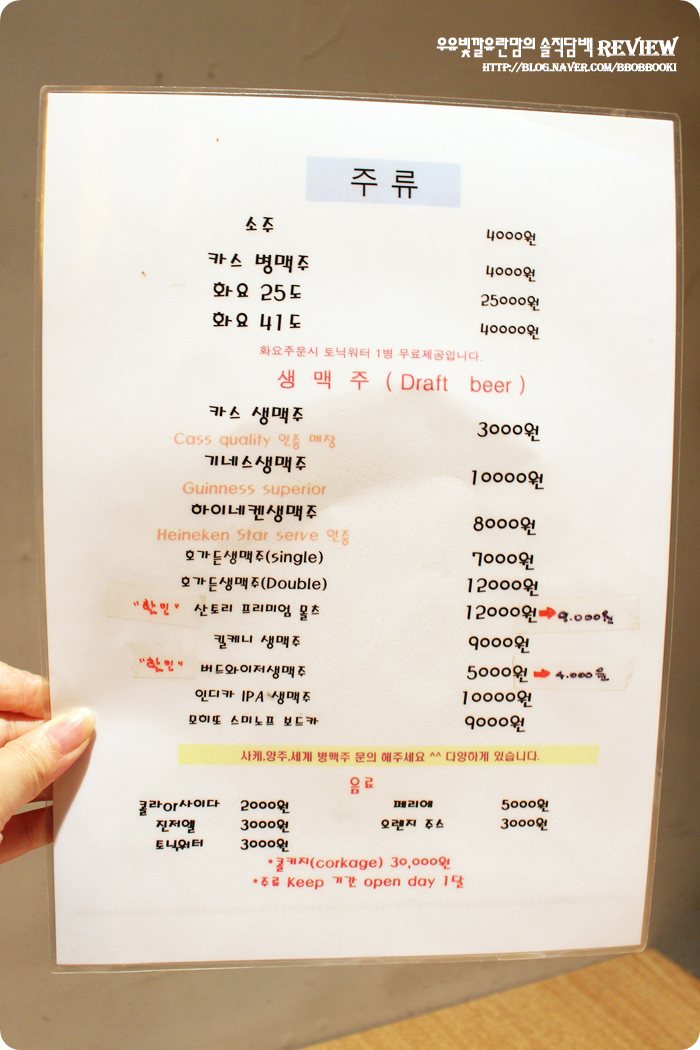 우유빛깔유란맘의 솔직담백 REVIEW
HTTP://BLOG.NAVER.COM/BBOBBOOKI
주 류
소주 4000원
카스 병맥주 4000원
화요 25도 25000원
화요 41도 40000원
화요주문시 토닉워터 1병 무료제공입니다.
생 맥 주 ( Draft beer )
카스 생맥주 3000원
Cass quality 인증 매장
기네스생맥주 10000원
Guinness superior
하이네켄생맥주 8000원
Heineken Star serve 인증
호가든생맥주(single) 7000원
호가든생맥주(Double) 12000원
"할인" 산토리 프리미엄 몰츠 12000원 → 9.000원
킬케니 생맥주 9000원
"할인" 버드와이저생맥주 5000원 → 4.000원
인디카 IPA 생맥주 10000원
모히또 스미노프 보드카 9000원
사케,양주,세계 병맥주 문의 해주세요 ^^ 다양하게 있습니다.
음료
콜라or사이다 2000원 페리에 5000원
진저엘 3000원 오렌지 주스 3000원
토닉워터 3000원
*콜키지(corkage) 30,000원
*주류 Keep 기간 open day 1달